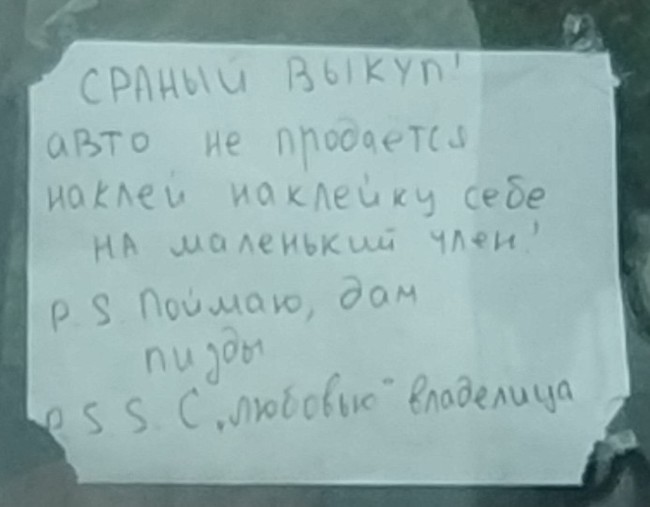 СРАНЫЙ ВЫКУП!
авто не продается
наклей наклейку себе
на маленький член!
P.S. Поймаю, дам
пизды
P.S.S. С „любовью" владелица